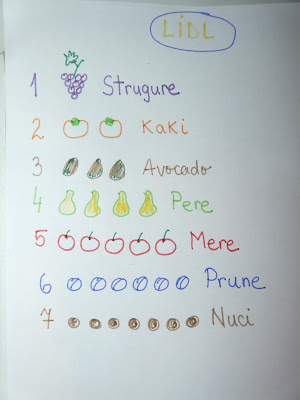 LiDL
1 Strugure
2 Kaki
3 Avocado
4 Pere
5 Mere
6 Prune
7 Nuci